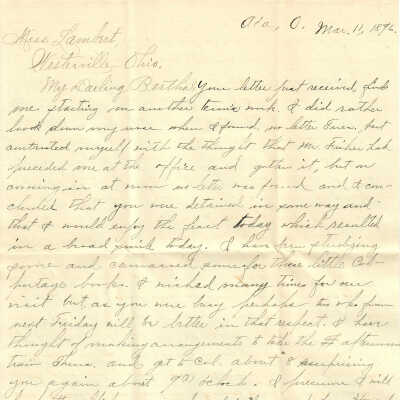 Ada, O. Mar. 11, 1896.
Miss. Lambert,
Westerville Ohio.
My Darling Bertha Your letter just received, finds
me starting in another term's work. I did rather
look down my nose when I found no letter Tues. but
contented myself with the thought that Mr. Fisher had
preceded me at the office and gotten it, but on
coming in at noon no letter was found and I con-
cluded that you were detained in some way and
that I would enjoy the feast today which resulted
in a broad smile today. I have been studying
some and canvassed some for those little Col-
portage books. I wished many times for our
visit but as you were busy perhaps two wks from
next Friday will be better in that respect. I have
thought of making arrangements to take the afternoon
train Thurs. and get to Col. about 8 surprising
you again about 9 o'clock. I presume I will